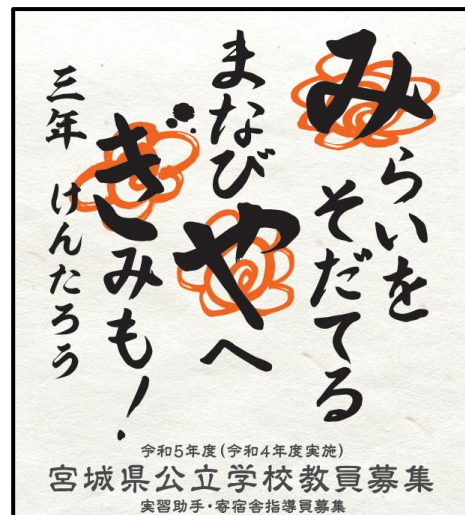 みらいを
そだてる
まなびやへ
ぎみも!
三年 けんたろう
令和5年度(令和4年度実施)
宮城県公立学校教員募集
実習助手・寄宿舎指導員募集